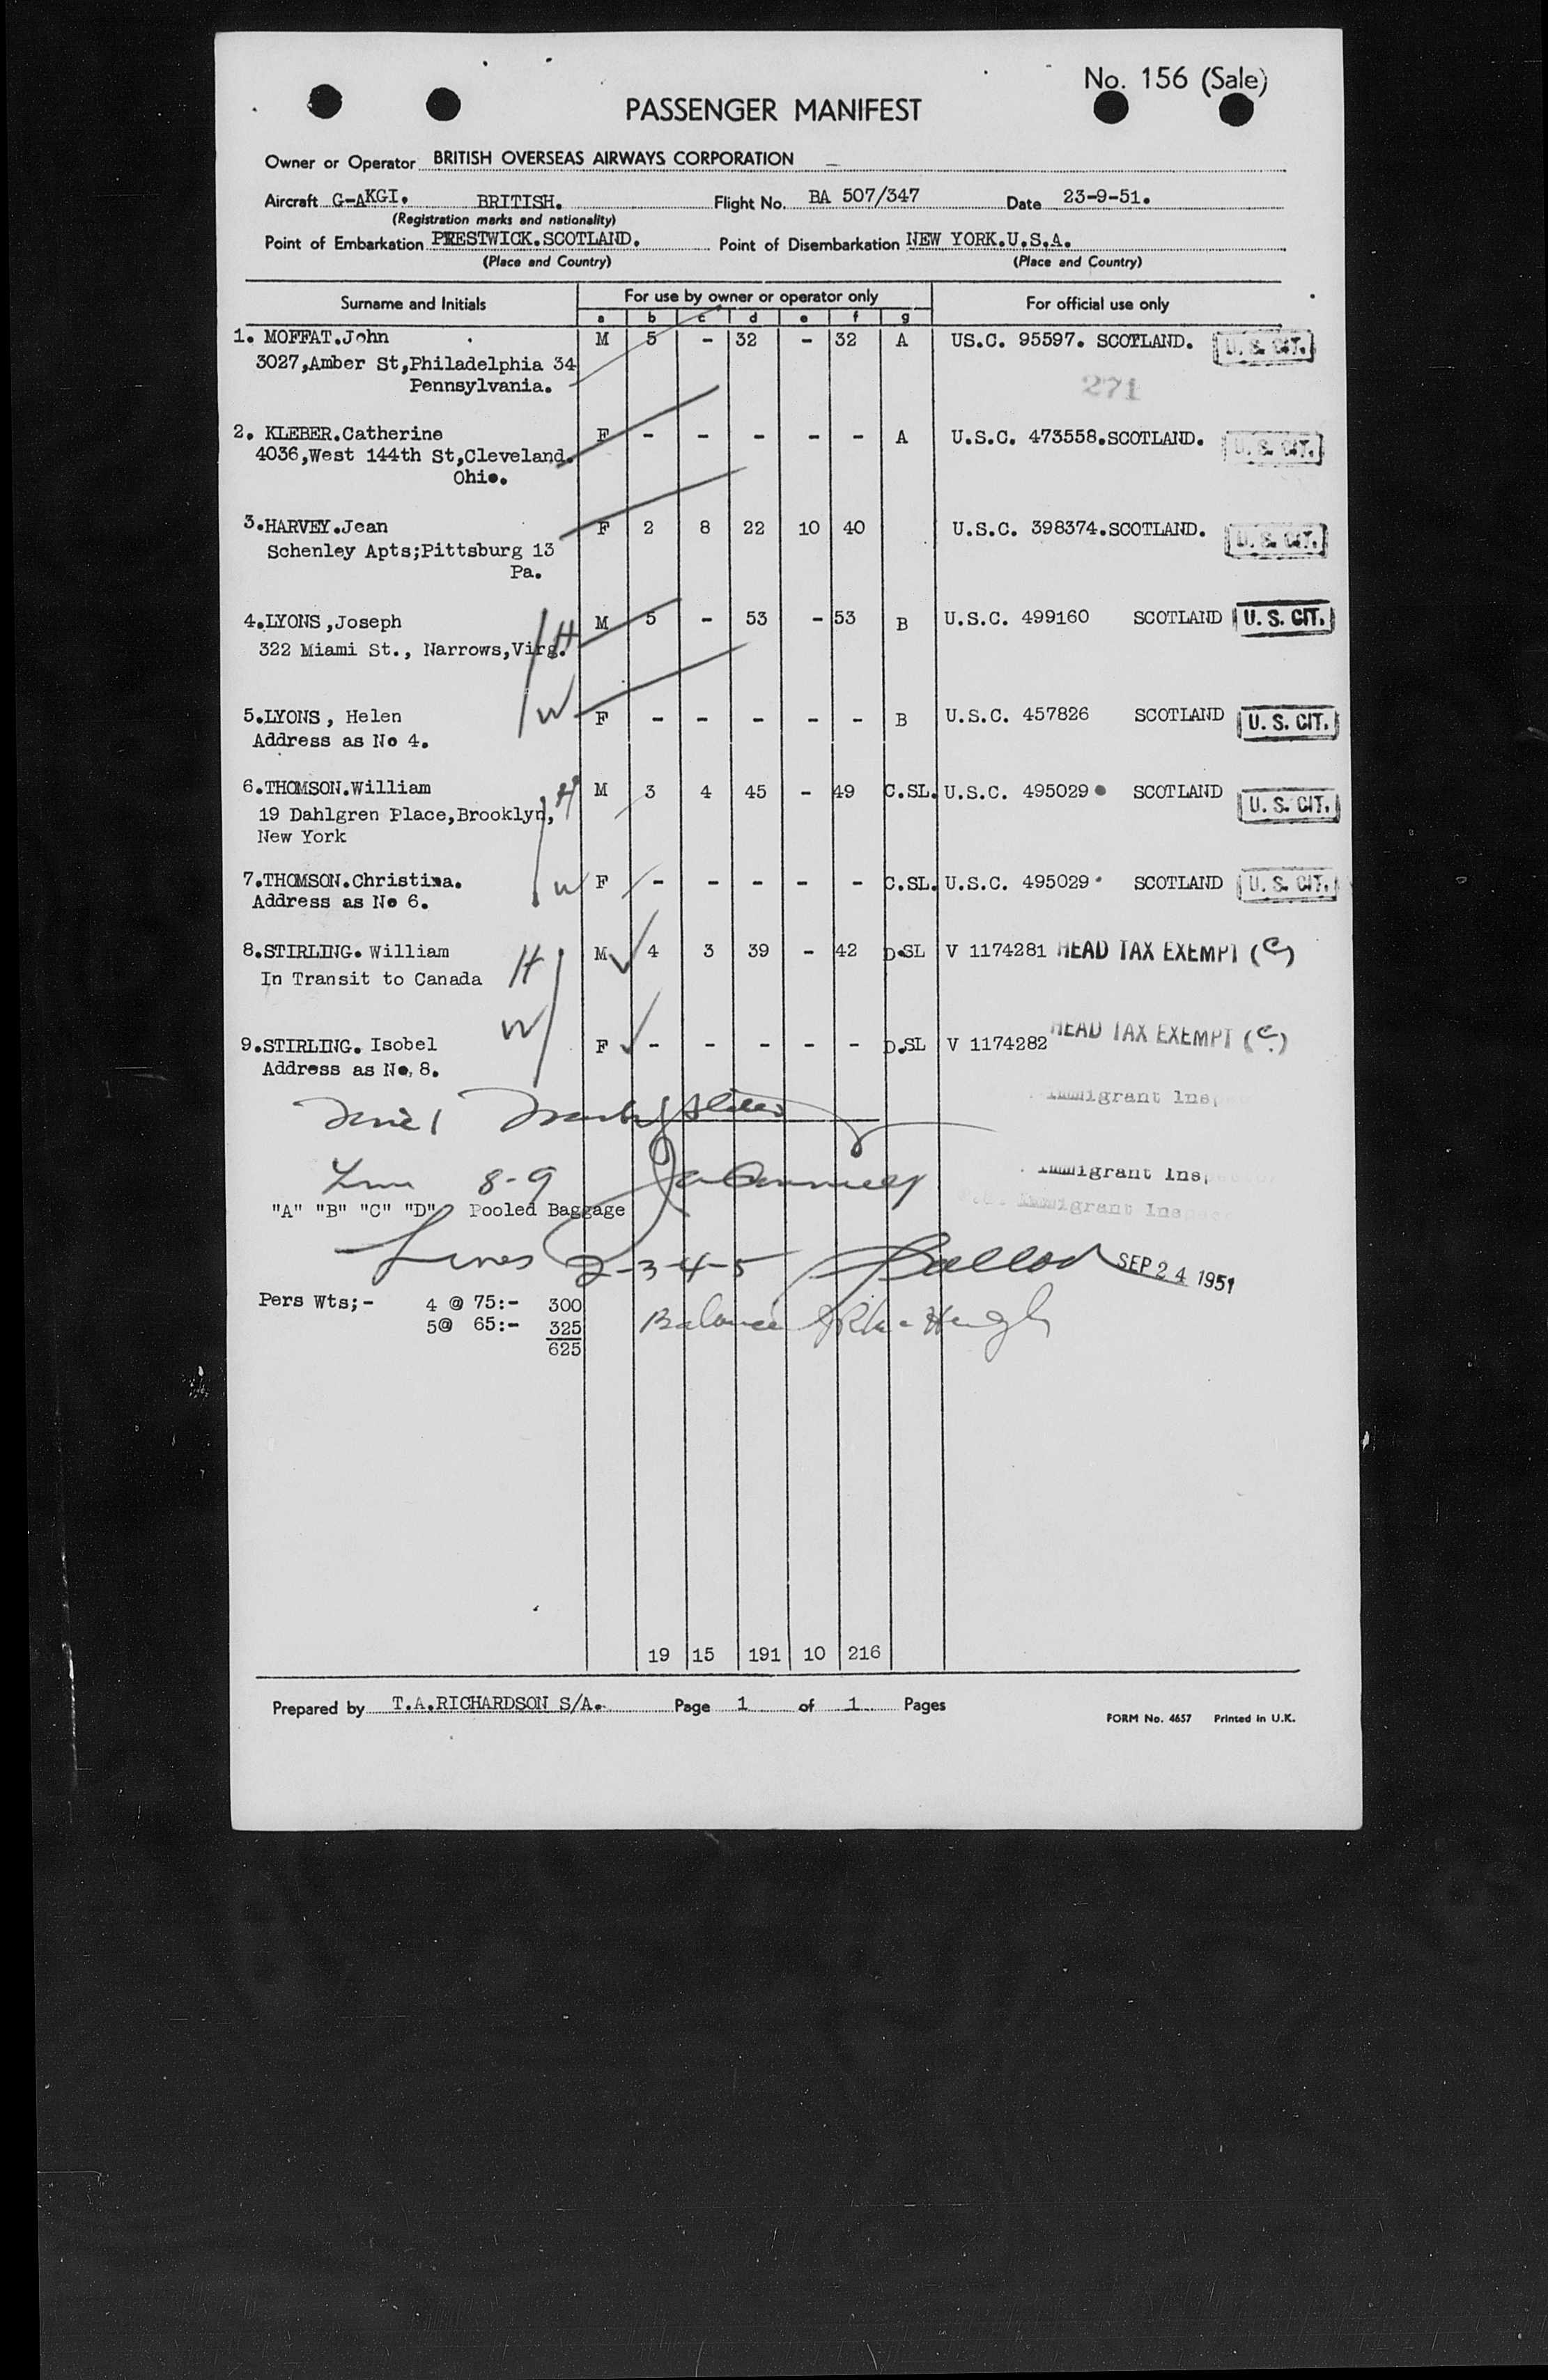 No. 156 (Sale)
PASSENGER MANIFEST
Owner or Operator BRITISH OVERSEAS AIRWAYS CORPORATION
Aircraft G-AKGI. BRITISH. Flight No. BA 507/347 Date 23-9-51.
(Registration marks and nationality)
Point of Embarkation PRESTWICK.SCOTLAND. Point of Disembarkation NEW YORK.U.S.A.
(Place and Country) (Place and Country)
Surname and Initials For use by owner or operator only For official use only
a b c d e f g
1. MOFFAT.John M 5 - 32 - 32 A US.C. 95597. SCOTLAND. U. S. CIT.
3027,Amber St,Philadelphia 34
Pennsylvania. 271
2. KLEBER.Catherine F - - - - - A U.S.C. 473558.SCOTLAND. U. S. CIT.
4036,West 144th St,Cleveland.
Ohio.
3.HARVEY.Jean F 2 8 22 10 40 U.S.C. 398374.SCOTLAND. U. S. CIT.
Schenley Apts;Pittsburg 13
Pa.
4.LYONS,Joseph H M 5 - 53 - 53 B U.S.C. 499160 SCOTLAND U. S. CIT.
322 Miami St., Narrows,Virg.
5.LYONS, Helen W F - - - - - B U.S.C. 457826 SCOTLAND U. S. CIT.
Address as No 4.
6.THOMSON.William H M 3 4 45 - 49 C.SL. U.S.C. 495029 SCOTLAND U. S. CIT.
19 Dahlgren Place,Brooklyn,
New York
7.THOMSON.Christina. W F - - - - - C.SL. U.S.C. 495029 SCOTLAND U. S. CIT.
Address as No 6.
8.STIRLING. William H M 4 3 39 - 42 D.SL V 1174281 HEAD TAX EXEMPT (C)
In Transit to Canada
9.STIRLING. Isobel W F - - - - - D.SL V 1174282 HEAD TAX EXEMPT (C)
Address as No, 8.
Immigrant Insp
8-9 Immigrant Insp
"A" "B" "C" "D" Pooled Baggage Immigrant Inspec
Lines 2-3-4-5 SEP 24 1951
Pers Wts;- 4 @ 75:- 300 Balance
5@ 65:- 325
625
19 15 191 10 216
Prepared by T.A.RICHARDSON S/A. Page 1 of 1 Pages
FORM No. 4657 Printed in U.K.